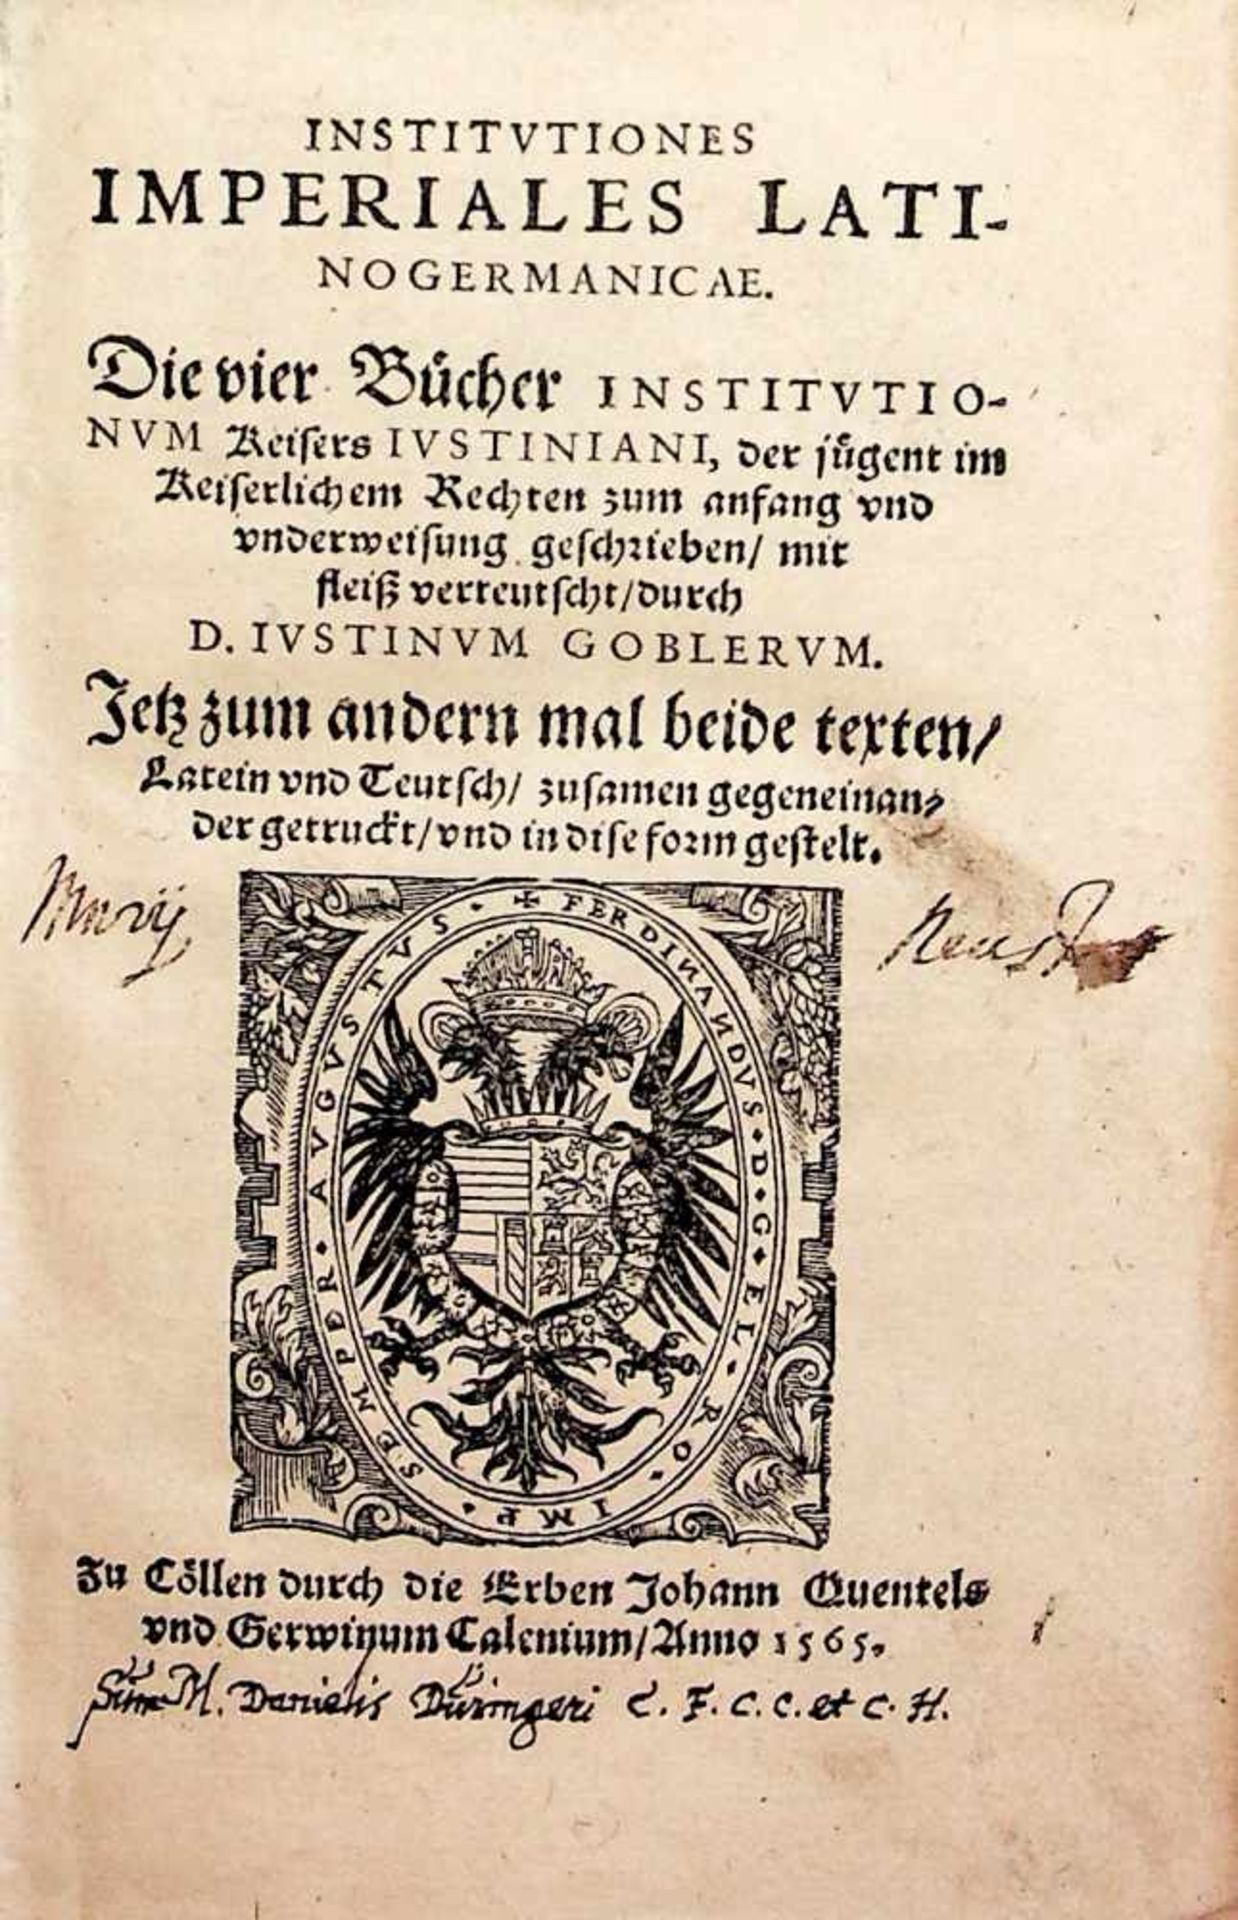 INSTITVTIONES
IMPERIALES LATI-
NOGERMANICAE.
Die vier Bücher INSTITVTIO-
NVM Keisers IVSTINIANI, der jügent im
Keiserlichem Rechten zum anfang vnd
vnderweisung geschrieben/ mit
fleiß verteutscht/durch
D. IVSTINVM GOBLERVM.
Jetz zum andern mal beide texten/
Latein vnd Teutsch/ zusamen gegeneinan-
der getruckt/vnd in dise form gestelt.
✠ FERDINANDVS · D · G · EL · RO · IMP · SEMPER · AVGVSTVS ·
Zu Cöllen durch die Erben Johann Quentels
vnd Gerwinum Calenium/Anno 1565.
Sum M. Danielis Düringeri C. F. C. C. et C. H.